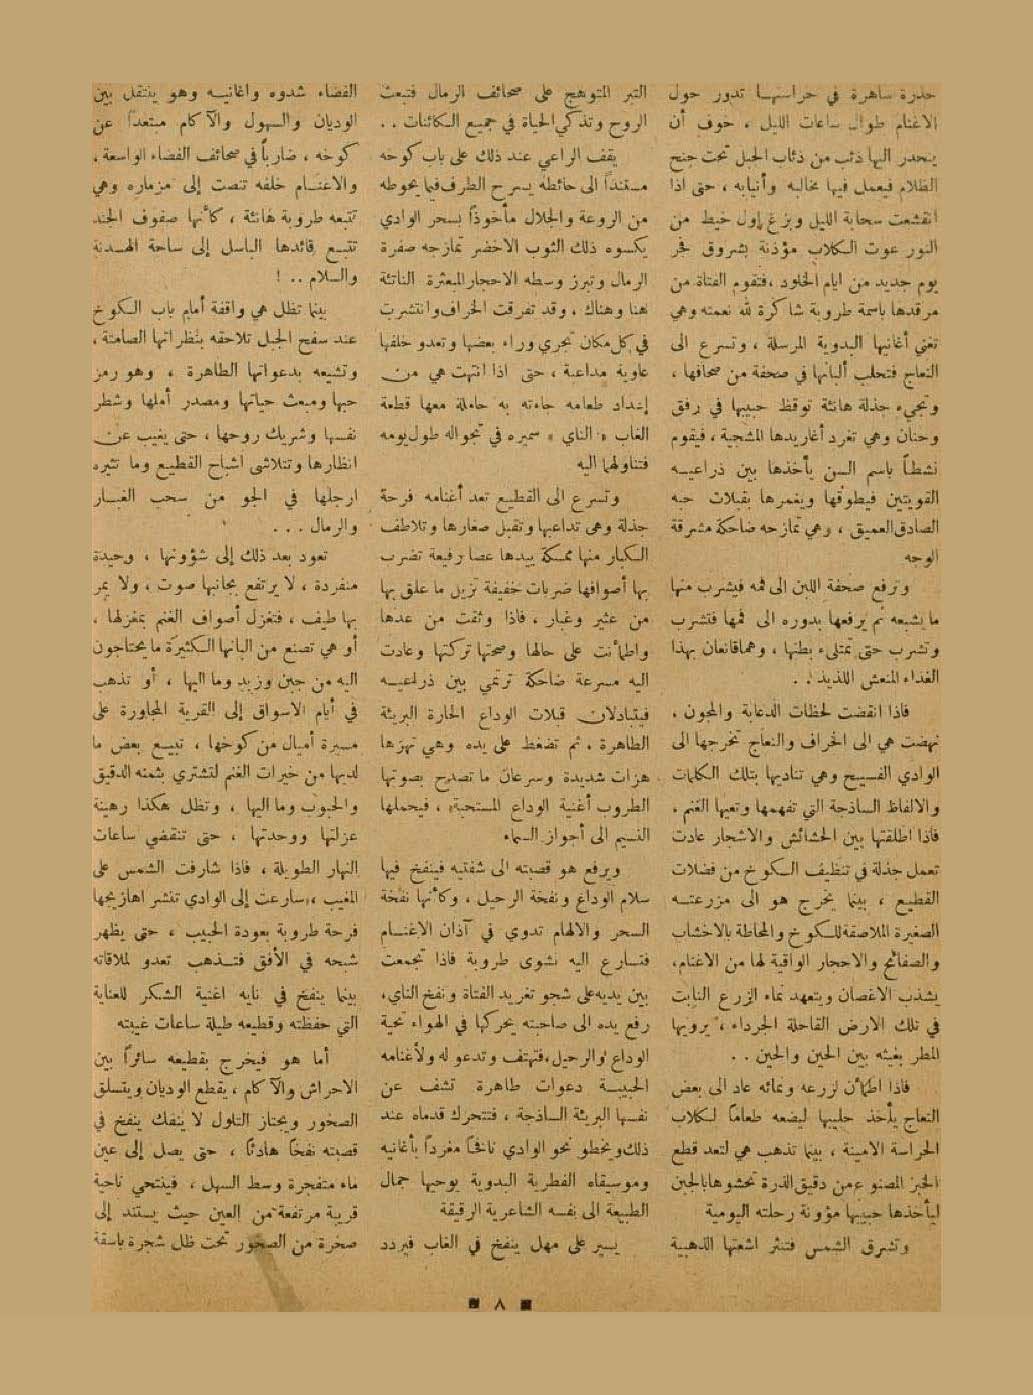 حذرة ساهرة في حراستها تدور حول
الاغنام طوال ساعات الليل ، خوف أن
ينحدر اليها ذئب من ذئاب الجبل تحت جنح
الظلام فيعمل فيها مخالبه وأنيابه ، حتى اذا
انقشعت سحابة الليل وبزغ اول خيط من
النور عوت الكلاب مؤذنة بشروق فجر
يوم جديد من ايام الخلود ، فتقوم الفتاة من
مرقدها باسمة طروبة شاكرة لله نعمته وهي
تغني أغانيها البدوية المرسلة ، وتسرع الى
النعاج فتحلب ألبانها في صحفة من صحافها ،
وتجيء جذلة هانئة توقظ حبيبها في رفق
وحنان وهي تغرد أغاريدها المشجية ، فيقوم
نشطاً باسم السن يأخذها بين ذراعيه
القويتين فيطوقها ويغمرها بقبلات حبه
الصادق العميق ، وهي تمازحه ضاحكة مشرقة
الوجه
وترفع صحفة اللبن الى فمه فيشرب منها
ما يشبعه ثم يرفعها بدوره الى فمها فتشرب
وتشرب حتى تمتلىء بطنها ، وهما قانعان بهذا
الغذاء المنعش اللذيذ . .
فاذا انقضت لحظات الدعابة والمجون ،
نهضت هي الى الخراف والنعاج تخرجها الى
الوادي الفسيح وهي تناديها بتلك الكلمات
والالفاظ الساذجة التي تفهمها وتعيها الغنم ،
فاذا اطلقتها بين الحشائش والاشجار عادت
تعمل جذلة في تنظيف الكوخ من فضلات
القطيع ، بينما يخرج هو الى مزرعته
الصغيرة الملاصقة للكوخ والمحاطة بالاخشاب
والصفائح والاحجار الواقية لها من الاغنام،
يشذب الاغصان ويتعهد نماء الزرع النابت
في تلك الارض القاحلة الجرداء ، يرويها
المطر بغيثه بين الحين والحين . .
فاذا اطمأن لزرعه ونمائه عاد الى بعض
النعاج يأخذ حليبها ليضعه طعاماً لكلاب
الحراسة الامينة ، بينما تذهب هي لتعد قطع
الخبز المصنوع من دقيق الذرة تحشوها بالجبن
ليأخذها حبيبها مؤونة رحلته اليومية
وتشرق الشمس فتنثر اشعتها الذهبية
التبر المتوهج على صحائف الرمال فتبعث
الروح وتذكي الحياة في جميع الكائنات . .
يقف الراعي عند ذلك على باب كوخه
مستنداً الى حائطه يسرح الطرف فيما يحوطه
من الروعة والجلال مأخوذاً بسحر الوادي
يكسوه ذلك الثوب الاخضر تمازجه صفرة
الرمال وتبرز وسطه الاحجار المبعثرة الناتئة
هنا وهناك ، وقد تفرقت الخراف وانتشرت
في كل مكان تجري وراء بعضها وتعدو خلفها
عاوية مداعبة ، حتى اذا انتهت هي من
إعداد طعامه جاءته به حاملة معها قطعة
الغاب « الناي » سميره في تجواله طول يومه
فتناولهما اليه
وتسرع الى القطيع تعد أغنامه فرحة
جذلة وهي تداعبها وتقبل صغارها وتلاطف
الكبار منها ممسكة بيدها عصا رفيعة تضرب
بها أصوافها ضربات خفيفة تزيل ما علق بها
من عثير وغبار ، فاذا وثقت من عدها
واطمأنت على حالها وصحتها تركتها وعادت
اليه مسرعة ضاحكة ترتمي بين ذراعيه
فيتبادلان قبلات الوداع الحارة البريئة
الطاهرة ، ثم تضغط على يده وهي تهزها
هزات شديدة وسرعان ما تصدح بصوتها
الطروب أغنية الوداع المستحبة ، فيحملها
النسيم الى أجواز السماء
ويرفع هو قصبته الى شفتيه فينفخ فيها
سلام الوداع ونفخة الرحيل ، وكأنها نفخة
السحر والالهام تدوي في آذان الاغنام
فتسارع اليه نشوى طروبة فاذا تجمعت
بين يديه على شجو تغريد الفتاة ونفخ الناي،
رفع يده الى صاحبته يحركها في الهواء تحية
الوداع والرحيل، فتهتف وتدعو له ولأغنامه
الحبيبة دعوات طاهرة تشف عن
نفسها البريئة الساذجة ، فتتحرك قدماه عند
ذلك ويخطو نحو الوادي نافخاً مغرداً بأغانيه
وموسيقاه الفطرية البدوية يوحيها جمال
الطبيعة الى نفسه الشاعرية الرقيقة
يسير على مهل ينفخ في الغاب فيردد
الفضاء شدوه واغانيه وهو يتنقل بين
الوديان والسهول والآكام مبتعداً عن
كوخه ، ضارباً في صحائف الفضاء الواسعة ،
والاغنام خلفه تنصت إلى مزماره وهي
تتبعه طروبة هانئة ، كأنها صفوف الجند
تتبع قائدها الباسل إلى ساحة الهدنة
والسلام .. !
بينما تظل هي واقفة أمام باب الكوخ
عند سفح الجبل تلاحقه بنظراتها الصامتة ،
وتشيعه بدعواتها الطاهرة ، وهو رمز
حبها ومبعث حياتها ومصدر أملها وشطر
نفسها وشريك روحها ، حتى يغيب عن
انظارها وتتلاشى اشباح القطيع وما تثيره
ارجلها في الجو من سحب الغبار
والرمال . . .
تعود بعد ذلك إلى شؤونها ، وحيدة
منفردة ، لا يرتفع بجانبها صوت ، ولا يمر
بها طيف ، فتغزل أصواف الغنم بمغزلها ،
أو هي تصنع من البانها الكثيرة ما يحتاجون
اليه من جبن وزبد وما اليها ، أو تذهب
في أيام الاسواق إلى القرية المجاورة على
مسيرة أميال من كوخها ، تبيع بعض ما
لديها من خيرات الغنم لتشتري بثمنه الدقيق
والحبوب وما اليها ، وتظل هكذا رهينة
عزلتها ووحدتها ، حتى تنقضي ساعات
النهار الطويلة ، فاذا شارفت الشمس على
المغيب ، سارعت إلى الوادي تنشر اهازيجها
فرحة طروبة بعودة الحبيب ، حتى يظهر
شبحه في الأفق فتذهب تعدو لملاقاته
بينما ينفخ في نايه اغنية الشكر للعناية
التي حفظته وقطيعه طيلة ساعات غيبته
أما هو فيخرج بقطيعه سائراً بين
الاحراش والآكام ، يقطع الوديان ويتسلق
الصخور ويجتاز التلول لا ينفك ينفخ في
قصبته نفخاً هادئاً ، حتى يصل إلى عين
ماء متفجرة وسط السهل ، فينتحي ناحية
قريبة مرتفعة من العين حيث يستند إلى
صخرة من الصخور تحت ظل شجرة باسقة
■ ٨ ■